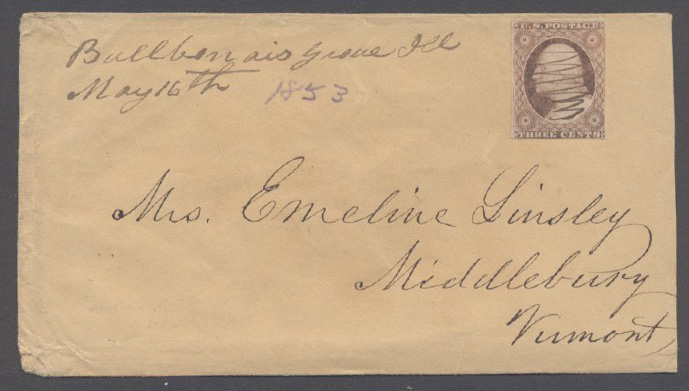 Bullbonais Grove Ill
May 16th 1853
U.S. POSTAGE
THREE CENTS
Mrs. Emeline Linsley
Middlebury
Vermont